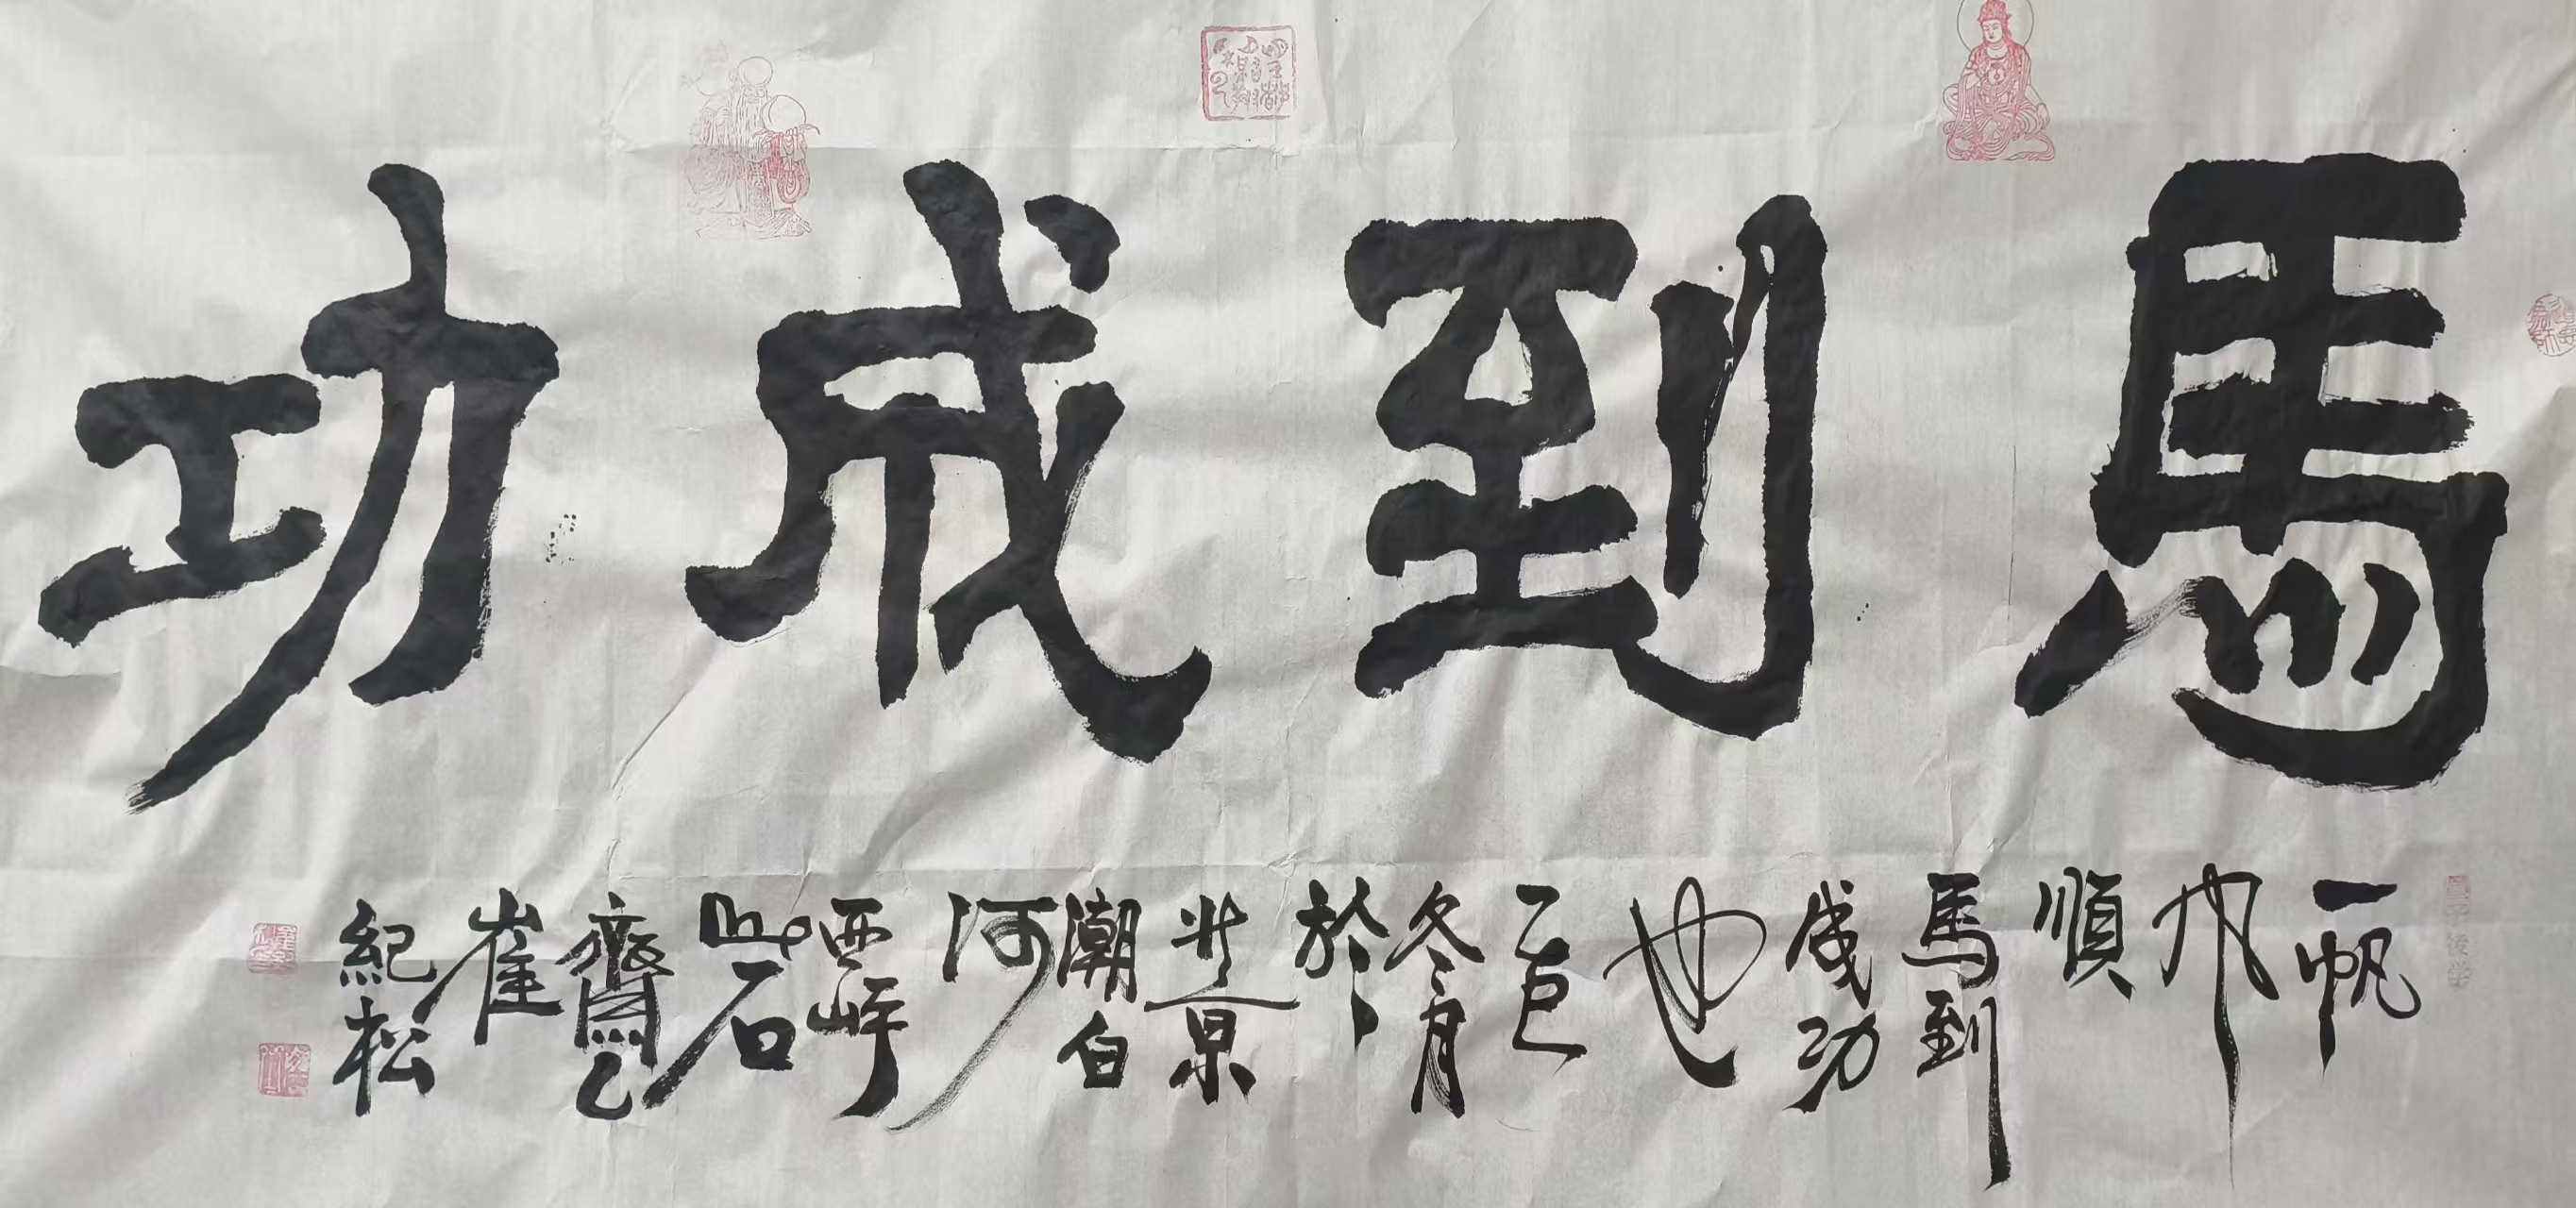 馬到成功
一帆
風
順
馬到
成功
也
乙巳
冬月
於
北京
潮白
河
西岸
石
齋
崔
紀松